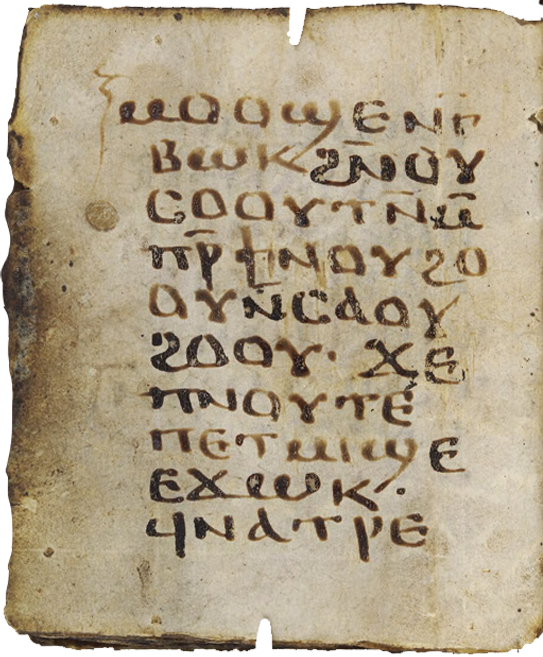 ⲙⲟⲟϣⲉⲛⲅ
ⲃⲱⲕϩⲛ̄ⲟⲩ
ⲥⲟⲟⲩⲧⲛ̄ⲙ̄
ⲡⲣ̄ϯⲛⲟⲩϩⲟ
ⲟⲩⲛ̄ⲥⲁⲟⲩ
ϩⲟⲟⲩ· ϫⲉ
ⲡⲛⲟⲩⲧⲉ
ⲡⲉⲧⲙⲓϣⲉ
ⲉϫⲱⲕ·
ϥⲛⲁⲧⲣⲉ